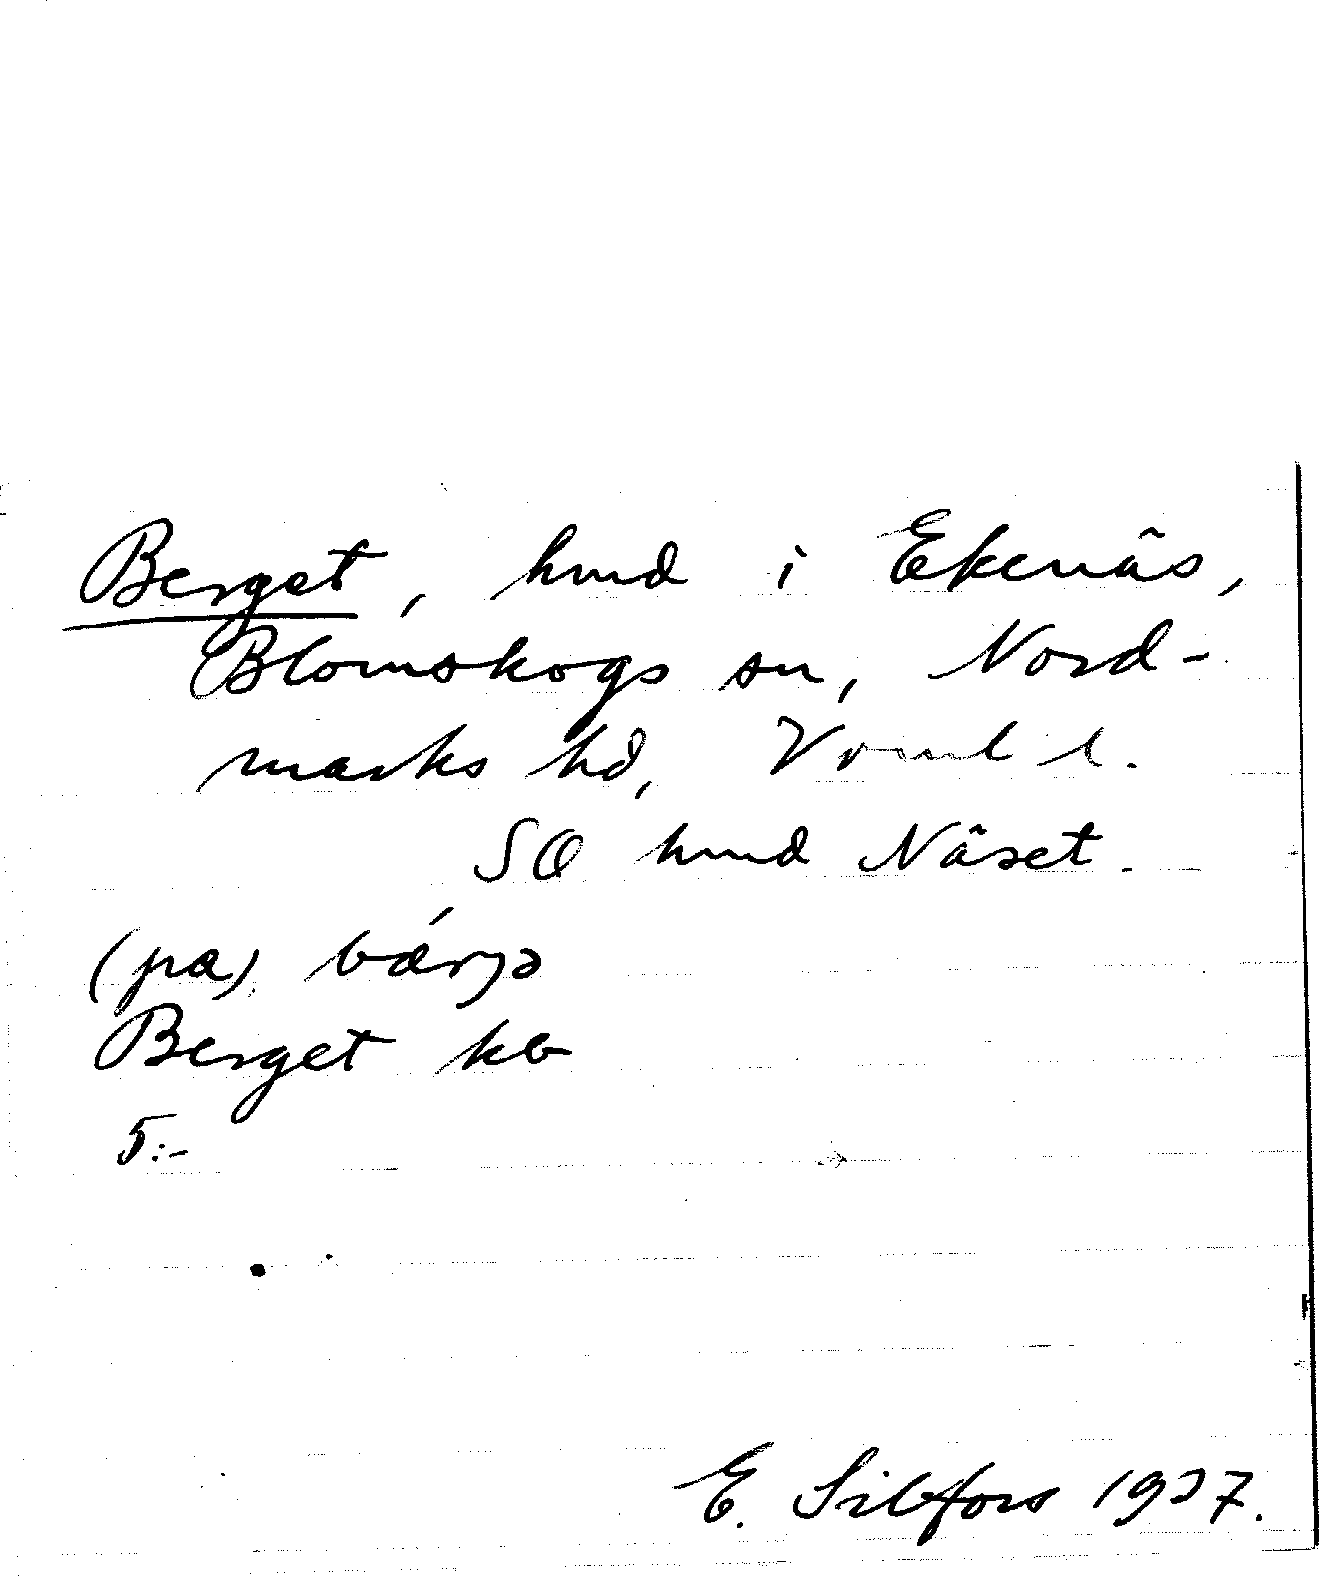 Berget, hmd i Ekenäs,
Blomskogs sn, Nord-
marks hd, Vrml l.
SO hmd Näset.
(pa) bærjə
Berget kb
5:-
E. Sibfors 1937.